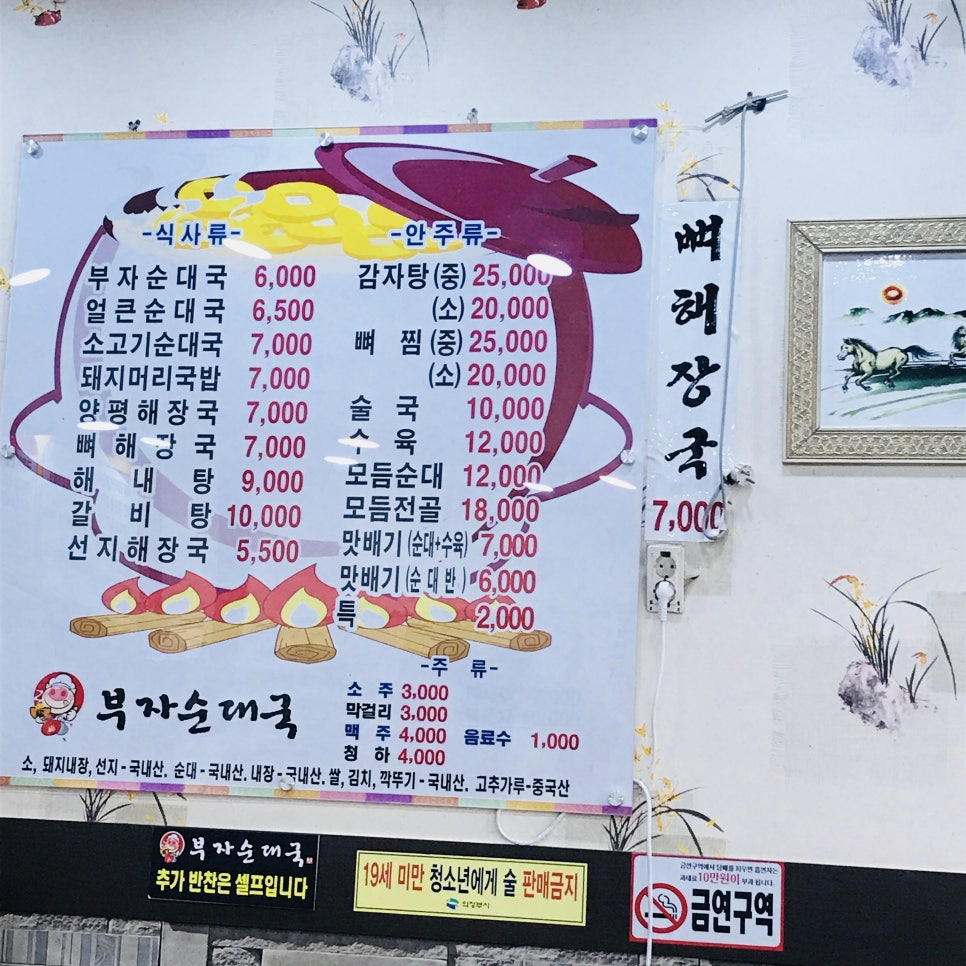 -식사류-
부자순대국 6,000
얼큰순대국 6,500
소고기순대국 7,000
돼지머리국밥 7,000
양평해장국 7,000
뼈해장국 7,000
해내탕 9,000
갈비탕 10,000
선지해장국 5,500
-안주류-
감자탕 (중) 25,000
(소) 20,000
뼈찜 (중) 25,000
(소) 20,000
술국 10,000
수육 12,000
모듬순대 12,000
모듬전골 18,000
맛배기 (순대+수육) 7,000
맛배기 (순대반) 6,000
특 2,000
-주류-
소주 3,000
막걸리 3,000
맥주 4,000 음료수 1,000
청하 4,000
부자순대국
소, 돼지내장, 선지-국내산. 순대-국내산. 내장-국내산. 쌀, 김치, 깍뚜기-국내산. 고추가루-중국산
뼈해장국
7,000
부자순대국
추가 반찬은 셀프입니다
19세 미만 청소년에게 술 판매금지
의정부시
금연구역에서 담배를 피우면 흡연자는
과태료 10만원이 부과 됩니다.
금연구역